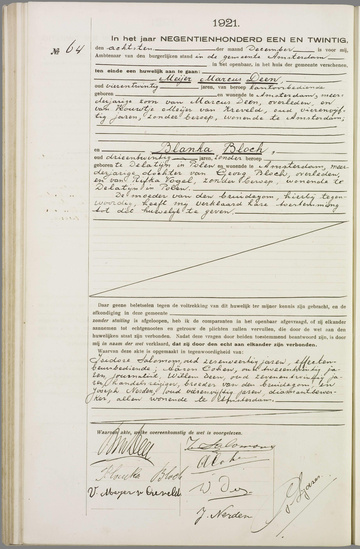 1921.
In het jaar NEGENTIENHONDERD EEN EN TWINTIG,
№ 64
den achtsten der maand December is voor mij,
Ambtenaar van den burgerlijken stand in de gemeente Amsterdam
in het openbaar, in het huis der gemeente verschenen,
ten einde een huwelijk aan te gaan:
Meijer Marcus Deen,
oud vierentwintig jaren, van beroep kantoorbediende
geboren en wonende te Amsterdam, meer-
derjarige zoon van Marcus Deen, overleden, en
van Vrouwtje Meijer van Kreveld, oud vierenvijf-
tig jaren, zonder beroep, wonende te Amsterdam;
en Blanka Bloch,
oud drieentwintig jaren, zonder beroep
geboren te Delatijn in Polen en wonende te Amsterdam, meer-
derjarige dochter van Georg Bloch, overleden,
en van Rifka Vogel, zonder beroep, wonende te
Delatijn in Polen.
De moeder van den bruidegom, hierbij tegen-
woordig, heeft mij verklaard hare toestemming
tot dit huwelijk te geven.
Daar geene beletselen tegen de voltrekking van dit huwelijk ter mijner kennis zijn gebracht, en de
afkondiging in deze gemeente
zonder stuiting is afgeloopen, heb ik de comparanten in het openbaar afgevraagd, of zij elkander
aannemen tot echtgenooten en getrouw de plichten zullen vervullen, die door de wet aan den
huwelijken staat zijn verbonden. Nadat deze vragen door beiden toestemmend beantwoord zijn, is door
mij in naam der wet verklaard, dat zij door den echt aan elkander zijn verbonden.
Waarvan deze akte is opgemaakt in tegenwoordigheid van:
Isidore Salomons, oud zevenveertig jaren, effecten-
beursbediende; Maren Cohen, oud tweeentwintig ja-
ren, journalist; Willem Deen, oud zevenentwintig ja-
ren, handelsreiziger, broeder van den bruidegom, en
Joseph Nerden, oud vierenvijftig jaren, diamantbewer-
ker, allen wonende te Amsterdam.
Waarvan akte, welke overeenkomstig de wet is voorgelezen.
Blanka Bloch
V. Meijer v. Creveld
Salomons
J. Nerden